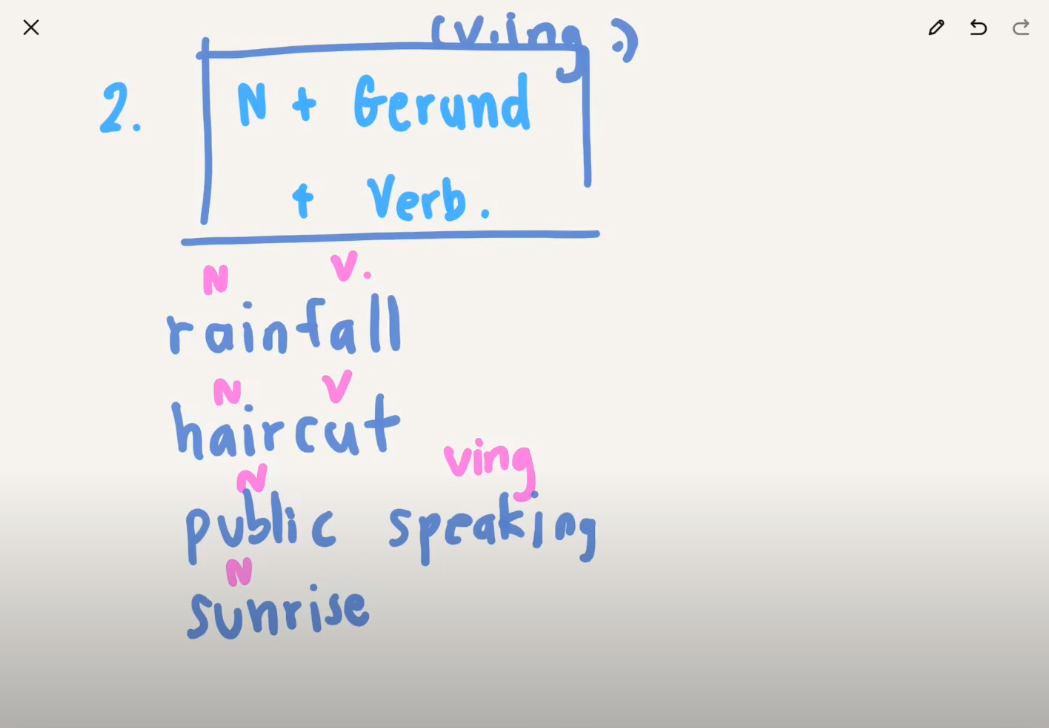 (v.ing.)
2. N + Gerund
+ Verb.
N V.
rainfall
N V
haircut
N ving
public speaking
N
sunrise